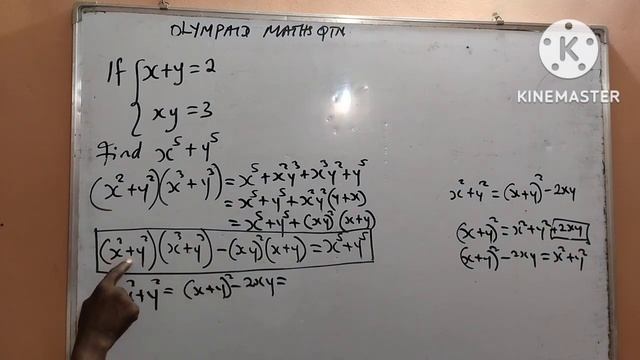 OLYMPAID MATHS QTN
K
KINEMASTER
If { x+y=2
xy=3
find x⁵+y⁵
(x²+y²)(x³+y³) = x⁵+x²y³+x³y²+y⁵
= x⁵+y⁵+x²y²(y+x)
= x⁵+y⁵+(xy)²(x+y)
(x²+y²)(x³+y³)-(xy)²(x+y)=x⁵+y⁵
²+y²= (x+y)²-2xy=
x²+y²=(x+y)²-2xy
(x+y)²=x²+y²+2xy
(x+y)²-2xy=x²+y²